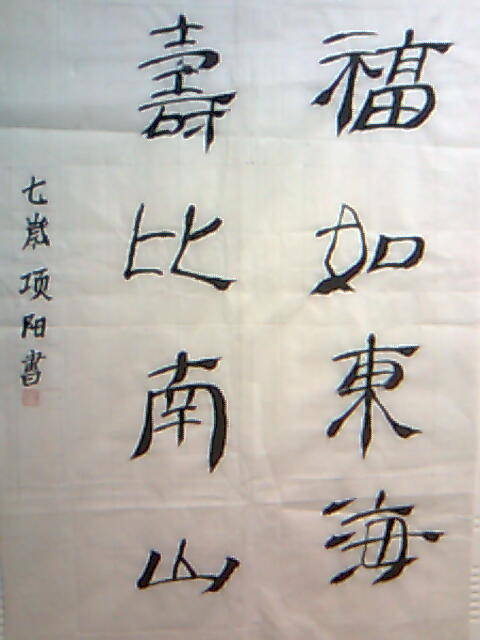 福如東海
壽比南山
七歲项阳書